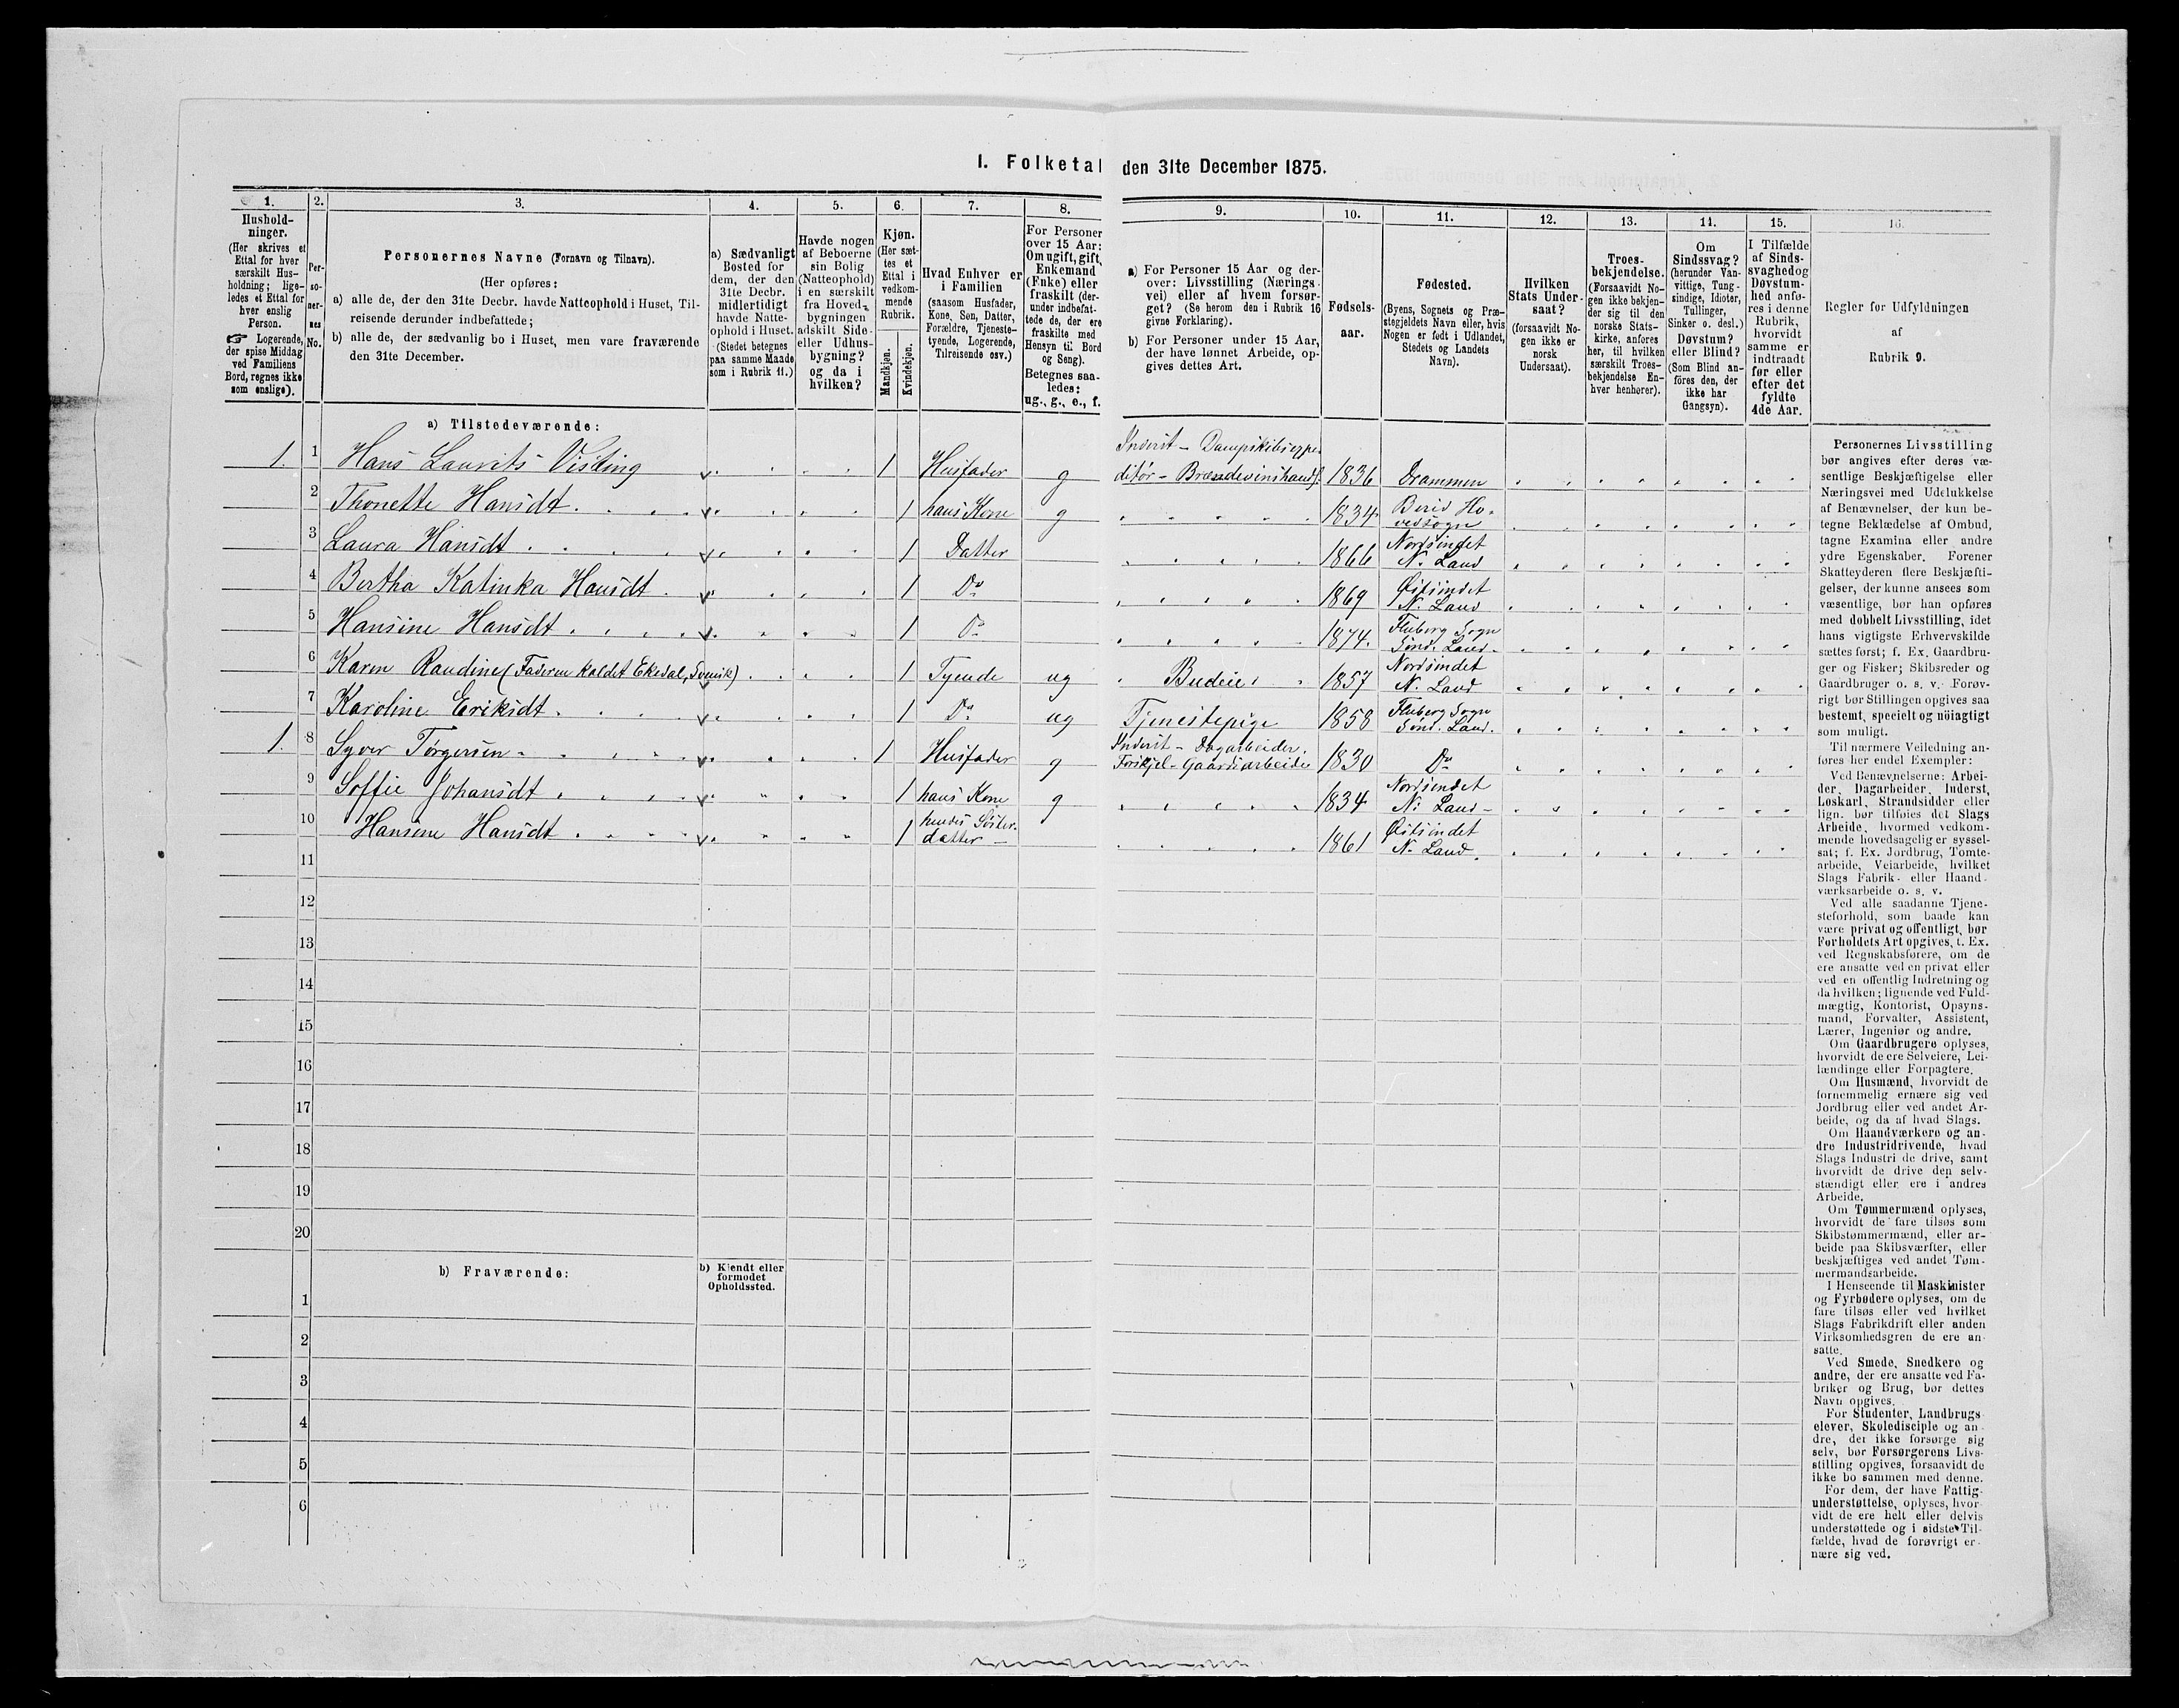 I. Folketal den 31te December 1875.
1.
Hushold-
ninger.
(Her skrives et
Ettal for hver
særskilt Hus-
holdning; lige-
ledes et Ettal for
hver enslig
Person.
☞ Logerende,
der spise Middag
ved Familiens
Bord, regnes ikke
som enslige).
2.
Per-
so-
ner-
nes
No.
3.
Personernes Navne (Fornavn og Tilnavn).
(Her opføres:
a) alle de, der den 31te Decbr. havde Natteophold i Huset, Til-
reisende derunder indbefattede;
b) alle de, der sædvanlig bo i Huset, men vare fraværende
den 31te December.
4.
a) Sædvanligt
Bosted for
dem, der den
31te Decbr.
midlertidigt
havde Natte-
ophold i Huset.
(Stedet betegnes
paa samme Maade
som i Rubrik 11.)
5.
Havde nogen
af Beboerne
sin Bolig
(Natteophold)
i en særskilt
fra Hoved-
bygningen
adskilt Side-
eller Udhus-
bygning?
og da i
hvilken?
6.
Kjøn.
(Her sæt-
tes et
Ettal i
vedkom-
mende
Rubrik.
Mandkjøn.
Kvindekjøn.
7.
Hvad Enhver er
i Familien
(saasom Husfader,
Kone, Søn, Datter,
Forældre, Tjeneste-
tyende, Logerende,
Tilreisende osv.)
8.
For Personer
over 15 Aar:
Om ugift, gift,
Enkemand
(Enke) eller
fraskilt (der-
under indbefat-
tede de, der ere
fraskilte med
Hensyn til Bord
og Seng).
Betegnes saa-
ledes:
ug., g., e., f.
9.
a) For Personer 15 Aar og der-
over: Livsstilling (Nærings-
vei) eller af hvem forsør-
get? (Se herom den i Rubrik 16
givne Forklaring).
b) For Personer under 15 Aar,
der have lønnet Arbeide, op-
gives dettes Art.
10.
Fødsels-
aar.
11.
Fødested.
(Byens, Sognets og Præ-
stegjeldets Navn eller, hvis
Nogen er født i Udlandet,
Stedets og Landets
Navn).
12.
Hvilken
Stats Under-
saat?
(forsaavidt No-
gen ikke er
norsk
Undersaat).
13.
Troes-
bekjendelse.
(Forsaavidt No-
gen ikke bekjen-
der sig til den
norske Stats-
kirke, anføres
her, til hvilken
særskilt Troes-
bekjendelse En-
hver henhører).
14.
Om
Sindssvag?
(herunder Van-
vittige, Tung-
sindige, Idioter,
Tullinger,
Sinker o. desl.)
Døvstum?
eller Blind?
(Som Blind an-
føres den, der
ikke har
Gangsyn).
15.
I Tilfælde
af Sinds-
svaghed og
Døvstum-
hed anfø-
res i denne
Rubrik,
hvorvidt
samme er
indtraadt
før eller
efter det
fyldte
4de Aar.
16.
Regler for Udfyldningen
af
Rubrik 9.
a) Tilstedeværende:
1. 1 Hans Laurits Visting 1 Husfader g Inderst - Dampskibsexpe-
ditør - Brændevinshandl. 1836 Drammen
2 Thonette Hansdt. 1 hans Kone g 1834 Birid Ho-
vedsogn
3 Laura Hansdt 1 Datter 1866 Nordsindet
N. Land
4 Bertha Katinka Hansdt 1 Do 1869 Østsindet
N. Land
5 Hansine Hansdt 1 Do 1874. Fluberg Sogn
Sønd. Land.
6 Karen Raudine (Faderen kaldet Ekedal, ) 1 Tyende ug Budeie 1857 Nordsindet
N. Land
7 Karoline Eriksdt. 1 Do ug Tjenestepige 1858 Fluberg Sogn
Sønd. Land.
1. 8 Syver Torgersen 1 Husfader g Inderst - Dagarbeider.
Forskjel- Gaardsarbeide 1830 Do
9 Soffie Johansdt 1 hans Kone g 1834 Nordsindet
N. Land
10 Hansine Hansdt 1 hendes Søster-
datter 1861 Østsindet
N. Land.
11
12
13
14
15
16
17
18
19
20
b) Fraværende:
b) Kjendt eller
formodet
Opholdssted.
1
2
3
4
5
6
Personernes Livsstilling
bør angives efter deres væ-
sentlige Beskjæftigelse eller
Næringsvei med Udelukkelse
af Benævnelser, der kun be-
tegne Beklædelse af Ombud,
tagne Examina eller andre
ydre Egenskaber. Forener
Skatteyderen flere Beskjæfti-
gelser, der kunne ansees som
væsentlige, bør han opføres
med dobbelt Livsstilling, idet
hans vigtigste Erhvervskilde
sættes først; f. Ex. Gaardbru-
ger og Fisker; Skibsreder og
Gaardbruger o. s. v. Forøv-
rigt bør Stillingen opgives saa
bestemt, specielt og nöiagtigt
som muligt.
Til nærmere Veiledning an-
føres her endel Exempler:
Ved Benævnelserne: Arbei-
der, Dagarbeider, Inderst,
Løskarl, Strandsidder eller
lign. bør tilføies det Slags
Arbeide, hvormed vedkom-
mende hovedsagelig er syssel-
sat; f. Ex. Jordbrug, Tomte-
arbeide, Veiarbeide, hvilket
Slags Fabrik- eller Haand-
værksarbeide o. s. v.
Ved alle saadanne Tjene-
steforhold, som baade kan
være privat og offentligt, bør
Forholdets Art opgives, t. Ex.
ved Regnskabsførere, om de
ere ansatte ved en privat eller
ved en offentlig Indretning og
da hvilken; lignende ved Fuld-
mægtig, Kontorist, Opsyns-
mand, Forvalter, Assistent,
Lærer, Ingeniør og andre.
Om Gaardbrugere oplyses,
hvorvidt de ere Selveiere, Lei-
lændinge eller Forpagtere.
Om Husmænd, hvorvidt de
fornemmelig ernære sig ved
Jordbrug eller ved andet Ar-
beide, og da af hvad Slags.
Om Haandværkere og an-
dre Industridrivende, hvad
Slags Industri de drive, samt
hvorvidt de drive den selv-
stændigt eller ere i andres
Arbeide.
Om Tømmermænd oplyses,
hvorvidt de fare tilsøs som
Skibstømmermænd, eller ar-
beide paa Skibsværfter, eller
beskjæftiges ved andet Tøm-
mermandsarbeide.
I Henseende til Maskinister
og Fyrbødere oplyses, om de
fare tilsøs eller ved hvilket
Slags Fabrikdrift eller anden
Virksomhedsgren de ere an-
satte.
Ved Smede, Snedkere og
andre, der ere ansatte ved Fa-
briker og Brug, bør dettes
Navn opgives.
For Studenter, Landbrugs-
elever, Skoledisciple og an-
dre, der ikke forsørge sig
selv, bør Forsørgerens Livs-
stilling opgives, forsaavidt de
ikke bo sammen med denne.
For dem, der have Fattig-
understøttelse, oplyses, hvor-
vidt de ere helt eller delvis
understøttede og i sidste Til-
fælde, hvad de forøvrigt er-
nære sig ved.